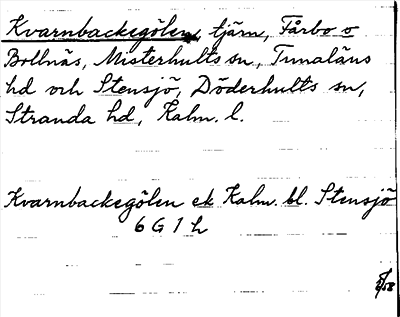 Kvarnbackegölen, tjärn, Fårbo o
Bollnäs, Misterhults sn, Tunaläns
hd och Stensjö, Döderhults sn,
Stranda hd, Kalm. l.
Kvarnbackegölen ek Kalm. bl. Stensjö
6 G 1 h